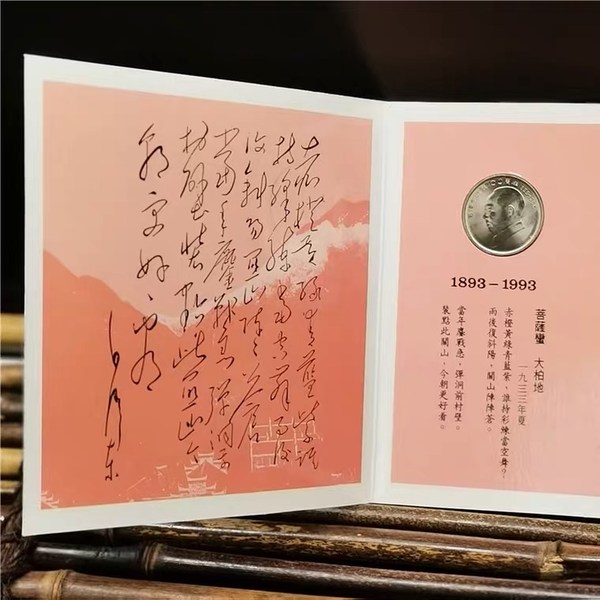 赤橙黃綠青藍紫誰
持彩練當空舞雨後
復斜陽關山陣陣蒼
當年鏖戰急彈洞前
村壁裝點此關山今
朝更好看
毛澤東
1893-1993
菩薩蠻 大柏地
一九三三年夏
赤橙黃綠青藍紫，誰持彩練當空舞？
雨後復斜陽，關山陣陣蒼。
當年鏖戰急，彈洞前村壁。
裝點此關山，今朝更好看。